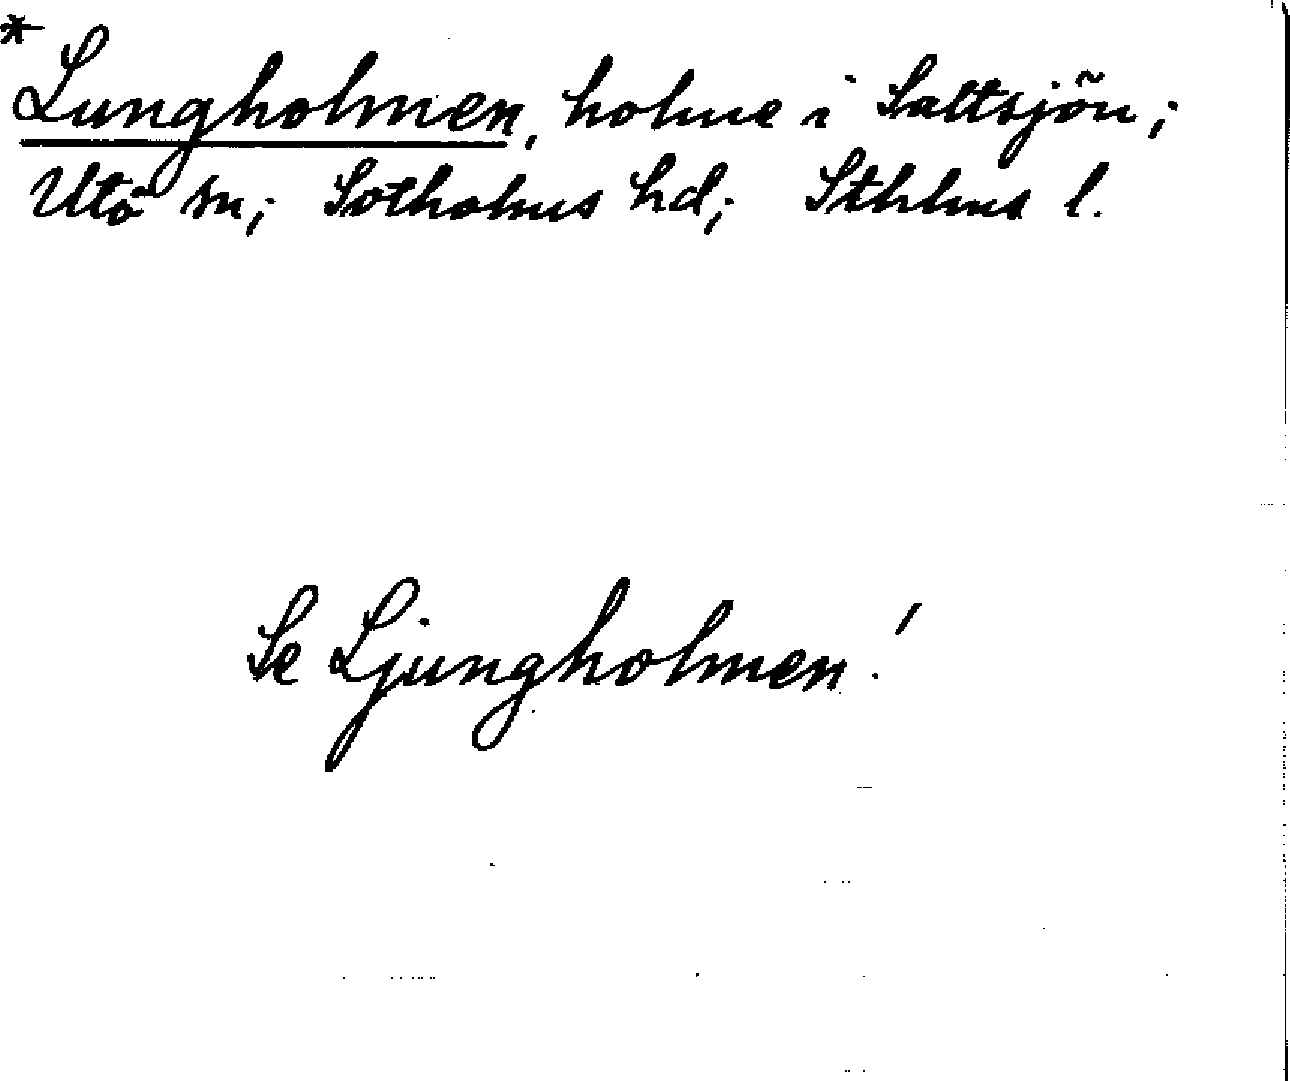 *Lungholmen, holme i Saltsjön;
Utö sn; Sotholms hd; Sthlms l.
Se Ljungholmen!